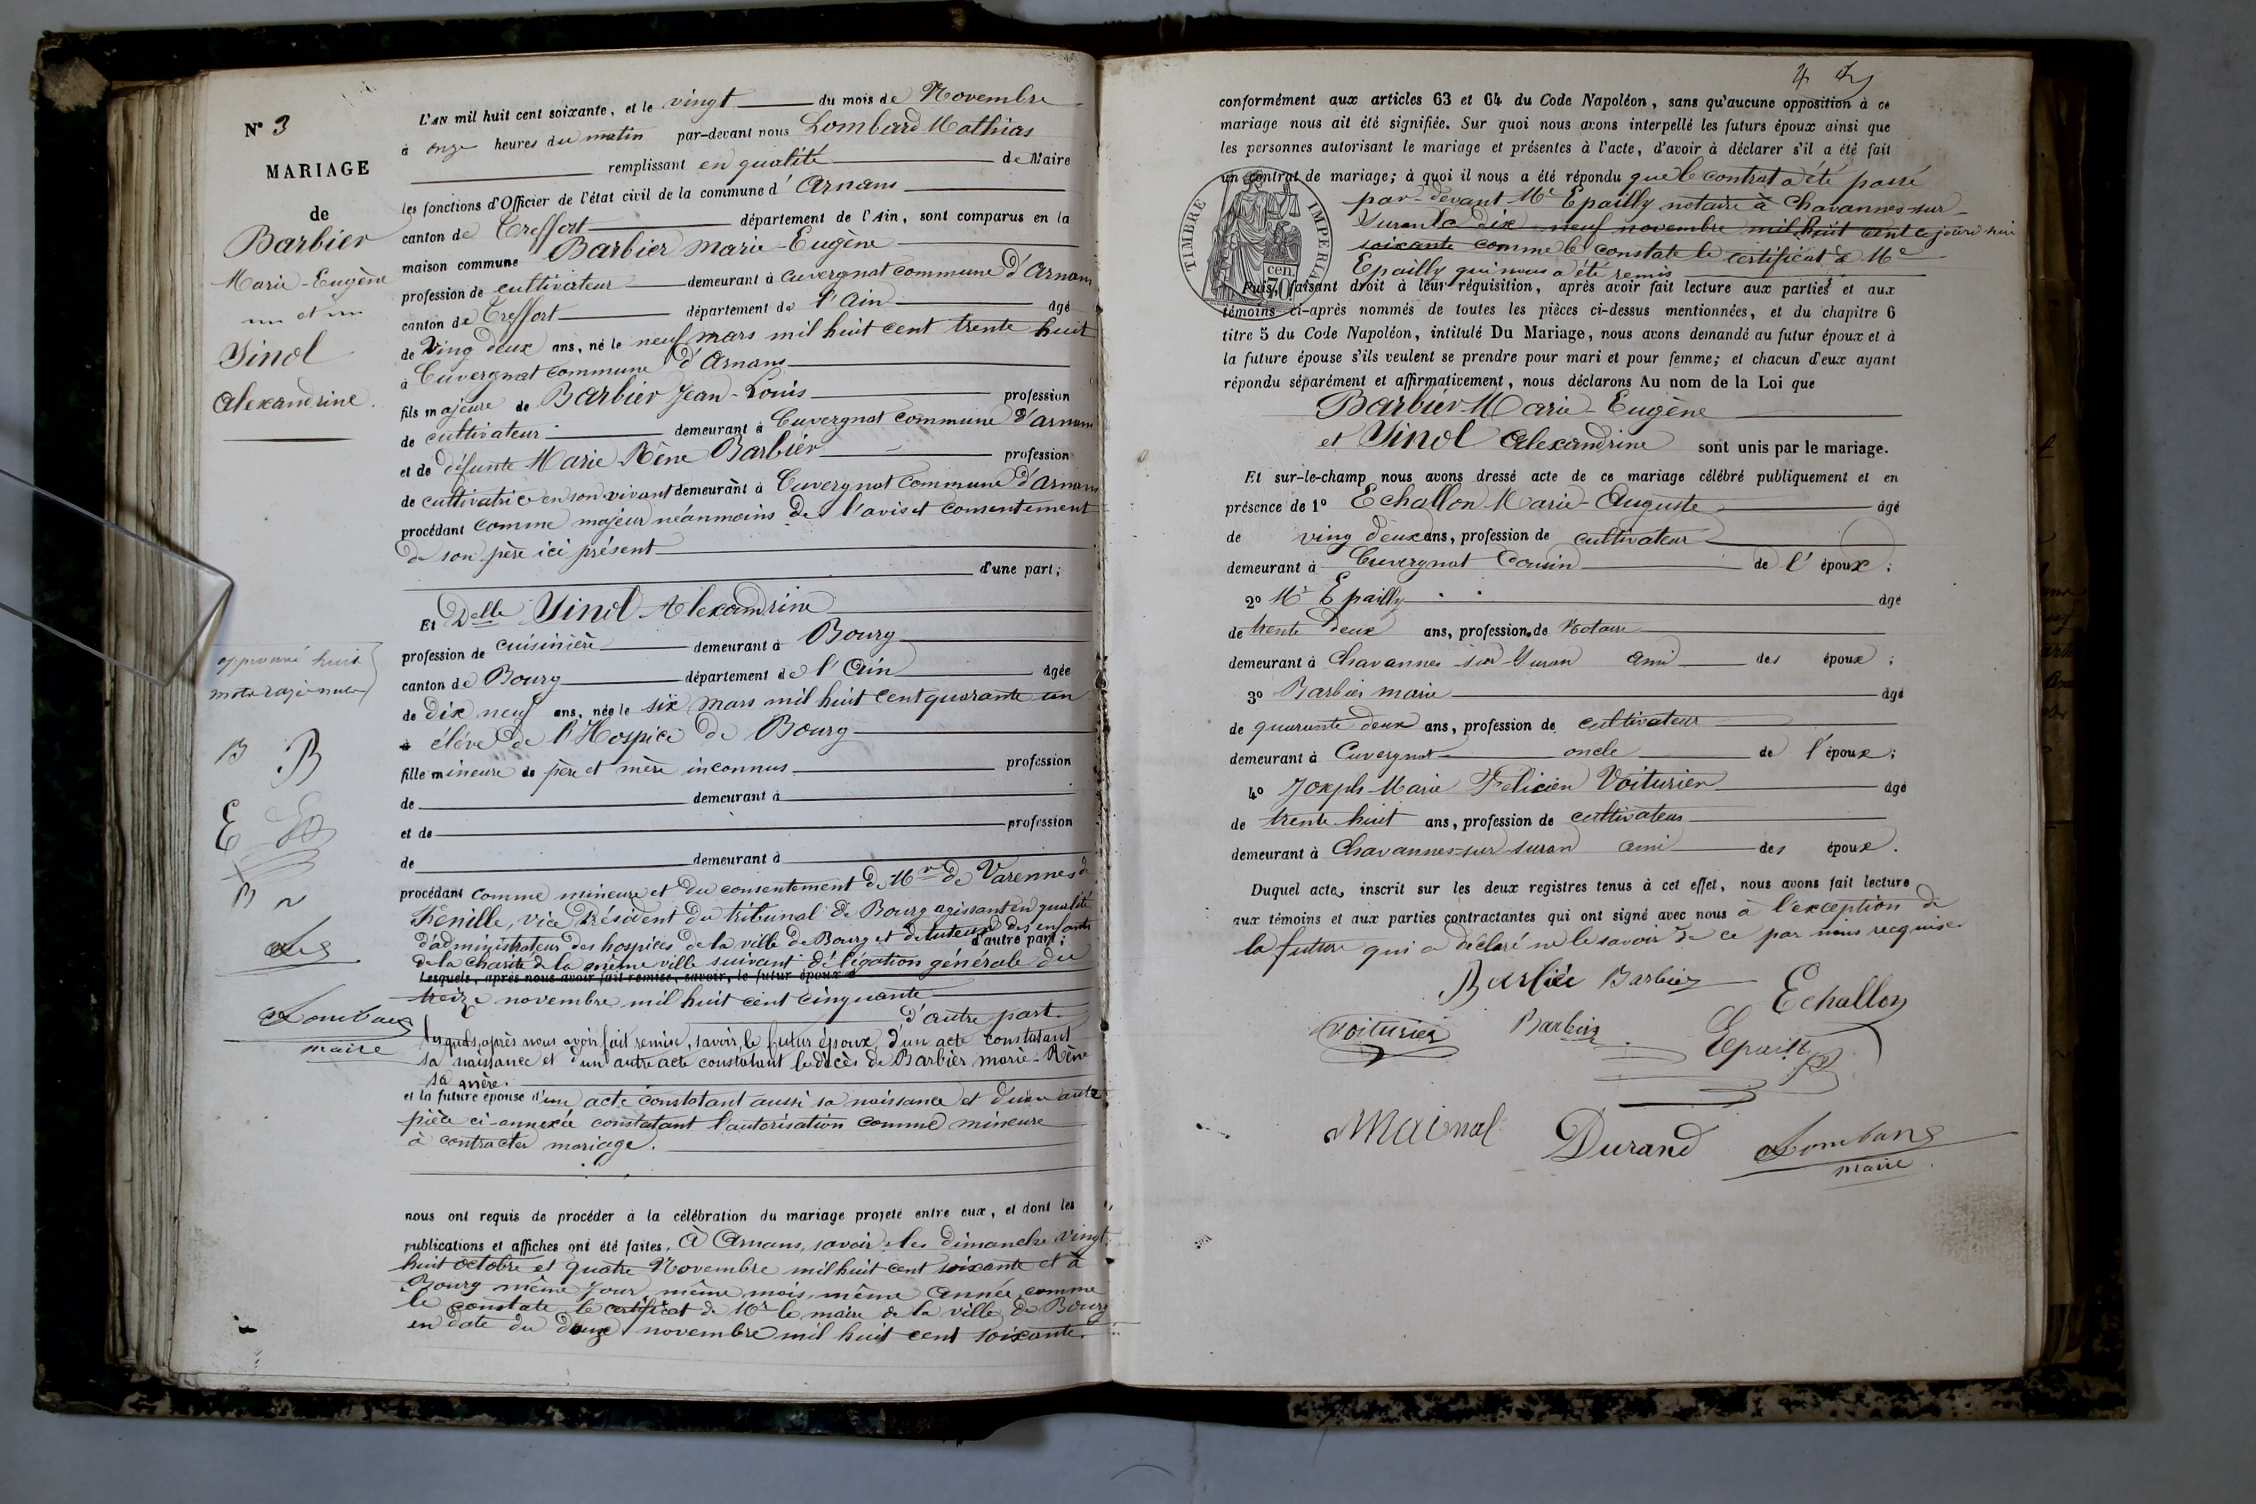 N° 3
MARIAGE
de
Barbier
Marie-Eugène
et
Sinol
Alexandrine.
approuvé huit
mots rayés nuls
B B
E
B
Lombard
maire
L'AN mil huit cent soixante, et le vingt du mois de Novembre
à onze heures du matin par-devant nous Lombard Mathias
remplissant en qualité de Maire
les fonctions d'Officier de l'état civil de la commune d'Arnans
canton de Treffort département de l'Ain, sont comparus en la
maison commune Barbier Marie-Eugène
profession de cultivateur demeurant à Cuvergnat commune d'Arnans
canton de Treffort département de l'Ain âgé
de Ving deux ans, né le neuf mars mil huit cent trente huit
à Cuvergnat commune d'Arnans
fils majeure de Barbier Jean-Louis profession
de cultivateur demeurant à Cuvergnat commune d'Arnans
et de défunte Marie Rène Barbier profession
de cultivatrice en son vivant demeurant à Cuvergnat commune d'Arnans
procédant comme majeur néanmoins de l'avis et consentement
de son père ici présent
d'une part;
Et Delle Sinol Alexandrine
profession de cuisinière demeurant à Bourg
canton de Bourg département de l'Ain âgée
de dix neuf ans, née le six mars mil huit cent quarante un
à élève de l'Hospice de Bourg
fille mineure de père et mère inconnus profession
de demeurant à
et de profession
de demeurant à
procédant comme mineure et du consentement de Mr de Varennes de
Fenille, vice Président du tribunal de Bourg agissant en qualité
d'administrateur des hospices de la ville de Bourg et de tuteur des enfants
d'autre part;
de la charité de la même ville suivant délégation générale du
Lesquels, après nous avoir fait remise, savoir, le futur époux d
treize novembre mil huit cent cinquante
d'autre part.
lesquels, après nous avoir fait remise, savoir, le futur époux, d'un acte constatant
sa naissance et d'un autre acte constatant le décès de Barbier marie-Rène
sa mère.
et la future épouse d'un acte constatant aussi sa naissance et d'une autre
pièce ci-annexée constatant l'autorisation comme mineure
à contracter mariage.
nous ont requis de procéder à la célébration du mariage projeté entre eux, et dont les
publications et affiches ont été faites, à Arnans, savoir: les dimanche vingt
huit octobre et quatre Novembre mil huit cent soixante et à
Bourg même jour, même mois même année, comme
le constate le certificat de Mr le maire de la ville de Bourg
en date du douze novembre mil huit cent soixante.
4
conformément aux articles 63 et 64 du Code Napoléon, sans qu'aucune opposition à ce
mariage nous ait été signifiée. Sur quoi nous avons interpellé les futurs époux ainsi que
les personnes autorisant le mariage et présentes à l'acte, d'avoir à déclarer s'il a été fait
un contrat de mariage; à quoi il nous a été répondu que le contrat a été passé
par-devant Me Epailly notaire à Chavannes-sur-
Suran le dix neuf novembre mil huit cent ce jourd'hui
soixante comme le constate le certificat de Me
Epailly qui nous a été remis
TIMBRE IMPERIAL
cen.
70
Puis, faisant droit à leur réquisition, après avoir fait lecture aux parties et aux
témoins ci-après nommés de toutes les pièces ci-dessus mentionnées, et du chapitre 6
titre 5 du Code Napoléon, intitulé Du Mariage, nous avons demandé au futur époux et à
la future épouse s'ils veulent se prendre pour mari et pour femme; et chacun d'eux ayant
répondu séparément et affirmativement, nous déclarons Au nom de la Loi que
Barbier Marie-Eugène
et Sinol Alexandrine sont unis par le mariage.
Et sur-le-champ nous avons dressé acte de ce mariage célébré publiquement et en
présence de 1° Echallon Marie-Auguste âgé
de ving deux ans, profession de cultivateur
demeurant à Cuvergnat Cousin de l'époux;
2° Mr Epailly âgé
de trente deux ans, profession de Notaire
demeurant à Chavannes sur Suran ami des époux;
3° Barbier marie âgé
de quarante deux ans, profession de cultivateur
demeurant à Cuvergnat oncle de l'époux;
4° Joseph Marie Felicien Voiturier âgé
de trente huit ans, profession de cultivateur
demeurant à Chavannes-sur-suran ami des époux.
Duquel acte, inscrit sur les deux registres tenus à cet effet, nous avons fait lecture
aux témoins et aux parties contractantes qui ont signé avec nous à l'exception de
la future qui a déclaré ne le savoir de ce par nous requise.
Barbier Barbier Echallon
Voiturier Barbier Epailly
Mainal Durand Lombard
maire